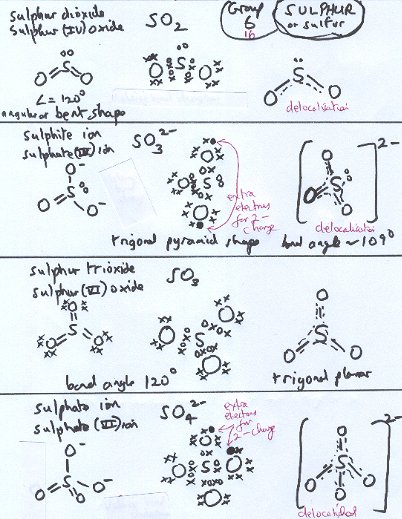 sulphur dioxide
sulphur (IV) oxide
SO2
Group
6
16
SULPHUR
or sulfur
O S O
O S O
O S O
∠ = 120°
angular or bent shape
delocalisation
sulphite ion
sulphate (IV) ion
SO3 2-
O
S
O O-
O
O S
O
extra
electrons
for 2-
charge
O
S
O O
2-
delocalisation
trigonal pyramid shape
bond angle ~109°
sulphur trioxide
sulphur (VI) oxide
SO3
O
S
O O
O
S O
O
O
S
O O
bond angle 120°
trigonal planar
sulphate ion
sulphate (VI) ion
SO4 2-
extra
electrons
for
2- charge
O-
S
O O O-
O
O S O
O
O
S
O O O
2-
delocalised